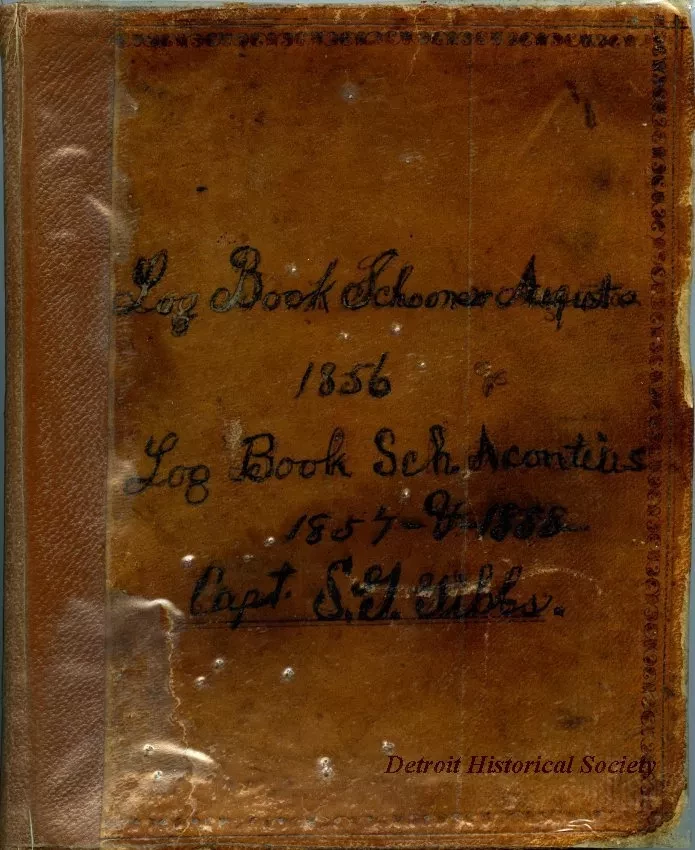 Log Book Schooner Augusta
1856
Log Book Sch Acontius
1857-&-1858
Capt. S.G. Gibbs.
Detroit Historical Society